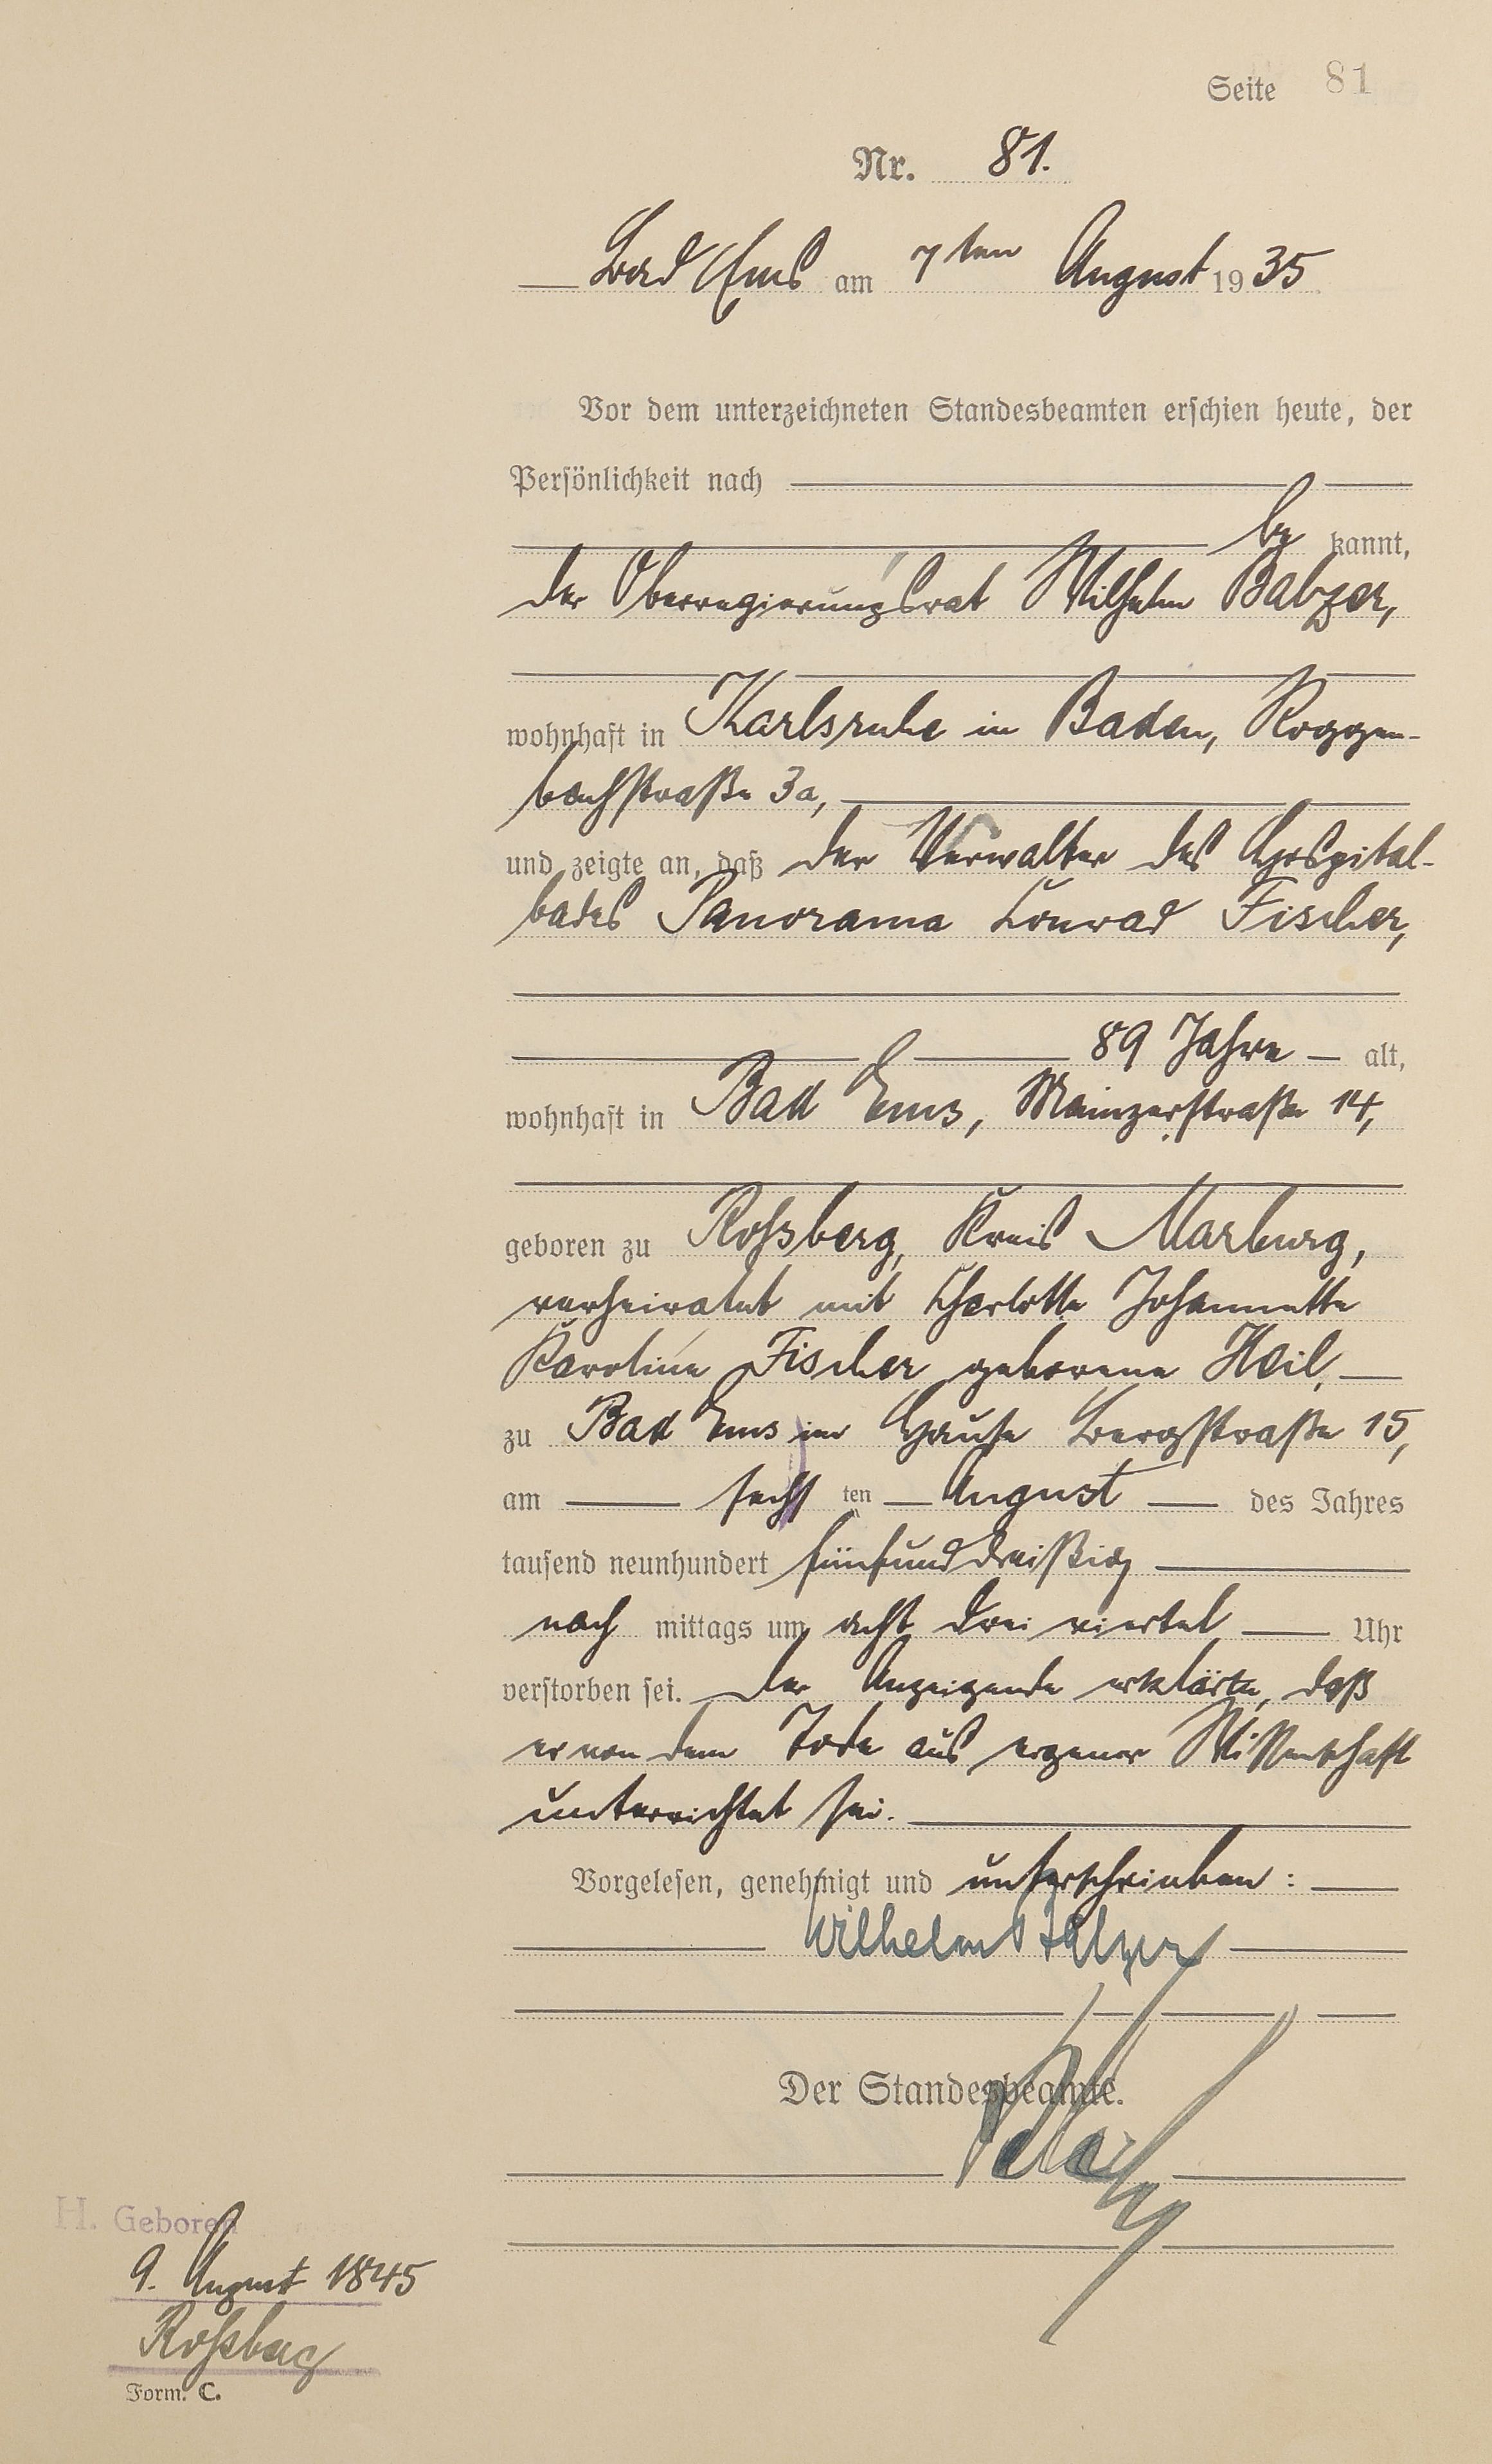 Seite 81
Nr. 81.
Bad Ems am 7ten August 1935
Vor dem unterzeichneten Standesbeamten erschien heute, der
Persönlichkeit nach
be kannt,
der Oberregierungsrat Wilhelm Balzer,
wohnhaft in Karlsruhe in Baden, Roggen-
bachstraße 3a,
und zeigte an, daß der Verwalter des Hospital-
bades Panorama Conrad Fischer,
89 Jahre alt,
wohnhaft in Bad Ems, Mainzerstraße 14,
geboren zu Roßberg, Kreis Marburg,
verheiratet mit Charlotte Johannette
Karoline Fischer geborene Heil,
zu Bad Ems im Hause Bergstraße 15,
am sechsten August des Jahres
tausend neunhundert fünfunddreißig
nach mittags um acht drei viertel Uhr
verstorben sei. Der Anzeigende erklärte, daß
er von dem Tode aus eigener Wissenschaft
unterrichtet sei.
Vorgelesen, genehmigt und unterschrieben:
Wilhelm Balzer
Der Standesbeamte.
H. Geboren
9. August 1845
Roßberg
Form. C.